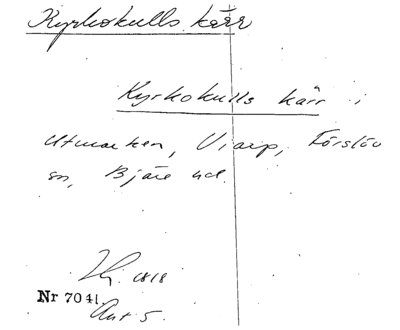 Kyrkokulls kärr
Kyrkokulls kärr i
utmarken, Viarp, Förslöv
sn, Bjäre hd.
1818
Nr 7041.
Akt 5.